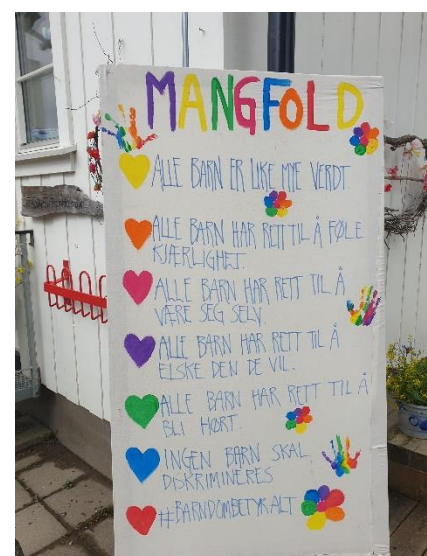 MANGFOLD
ALLE BARN ER LIKE MYE VERDT.
ALLE BARN HAR RETT TIL Å FØLE
KJÆRLIGHET.
ALLE BARN HAR RETT TIL Å
VÆRE SEG SELV.
ALLE BARN HAR RETT TIL Å
ELSKE DEN DE VIL.
ALLE BARN HAR RETT TIL Å
BLI HØRT.
INGEN BARN SKAL
DISKRIMINERES
#BARNDOMBETYRALT